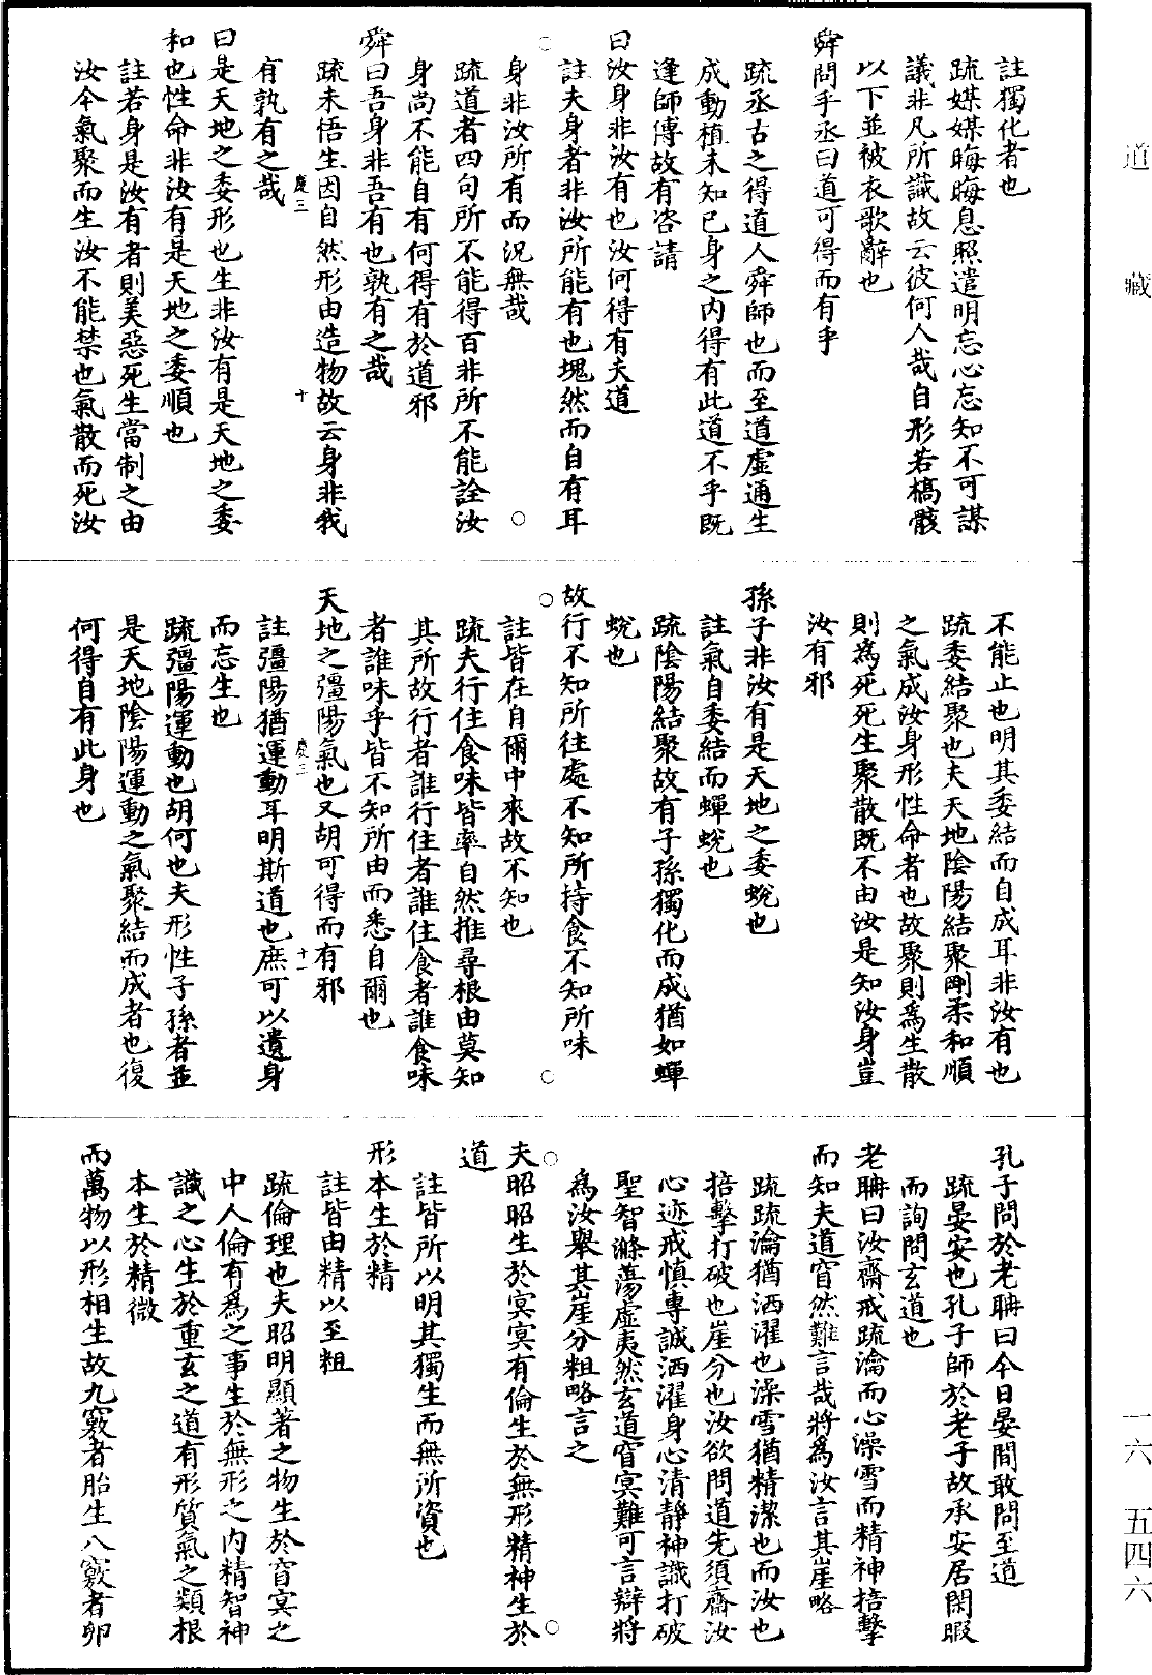 道藏
一六 五四六
註獨化者也
疏媒媒晦晦息照遣明忘心忘知不可謀
議非凡所識故云彼何人哉自形若槁骸
以下並被衣歌辭也
舜問乎丞曰道可得而有乎
疏丞古之得道人舜師也而至道虛通生
成動植未知已身之內得有此道不乎既
逢師傅故有咨請
曰汝身非汝有也汝何得有夫道
註夫身者非汝所能有也塊然而自有耳
身非汝所有而況無哉
疏道者四句所不能得百非所不能詮汝
身尚不能自有何得有於道邪
舜曰吾身非吾有也孰有之哉
疏未悟生因自然形由造物故云身非我
有孰有之哉
慶三
十
曰是天地之委形也生非汝有是天地之委
和也性命非汝有是天地之委順也
註若身是汝有者則美惡死生當制之由
汝今氣聚而生汝不能禁也氣散而死汝
不能止也明其委結而自成耳非汝有也
疏委結聚也夫天地陰陽結聚剛柔和順
之氣成汝身形性命者也故聚則為生散
則為死死生聚散既不由汝是知汝身豈
汝有邪
孫子非汝有是天地之委蛻也
註氣自委結而蟬蛻也
疏陰陽結聚故有子孫獨化而成猶如蟬
蛻也
故行不知所往處不知所持食不知所味
註皆在自爾中來故不知也
疏夫行住食味皆率自然推尋根由莫知
其所故行者誰行住者誰住食者誰食味
者誰味乎皆不知所由而悉自爾也
天地之彊陽氣也又胡可得而有邪
慶三
十一
註彊陽猶運動耳明斯道也庶可以遺身
而忘生也
疏彊陽運動也胡何也夫形性子孫者並
是天地陰陽運動之氣聚結而成者也復
何得自有此身也
孔子問於老聃曰今日晏間敢問至道
疏晏安也孔子師於老子故承安居閑暇
而詢問玄道也
老聃曰汝齋戒疏瀹而心澡雪而精神掊擊
而知夫道窅然難言哉將為汝言其崖略
疏疏瀹猶洒濯也澡雪猶精潔也而汝也
掊擊打破也崖分也汝欲問道先須齋汝
心迹戒慎專誠洒濯身心清靜神識打破
聖智滌蕩虛夷然玄道窅冥難可言辯將
為汝舉其崖分粗略言之
夫昭昭生於冥冥有倫生於無形精神生於
道
註皆所以明其獨生而無所資也
形本生於精
註皆由精以至粗
疏倫理也夫昭明顯著之物生於窅冥之
中人倫有為之事生於無形之內精智神
識之心生於重玄之道有形質氣之類根
本生於精微
而萬物以形相生故九竅者胎生八竅者卵